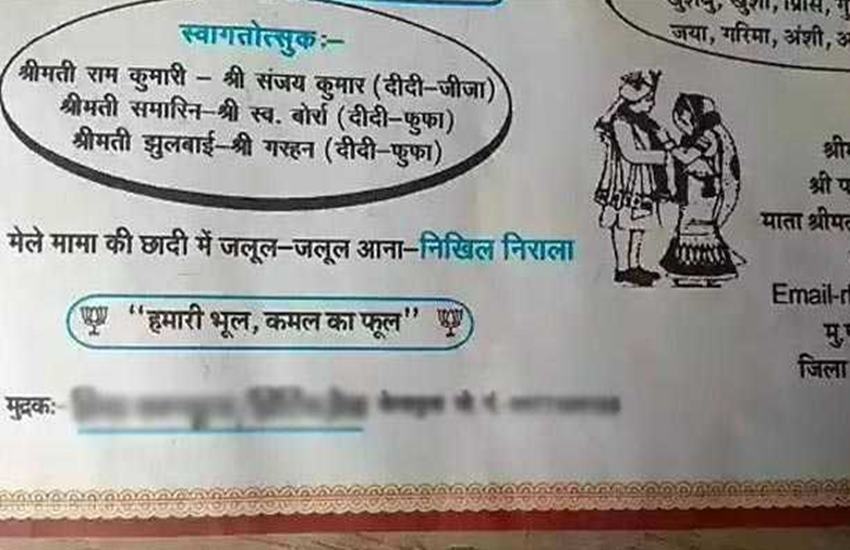 स्वागतोत्सुक:–
श्रीमती राम कुमारी – श्री संजय कुमार (दीदी–जीजा)
श्रीमती समारिन–श्री स्व. बोर्रा (दीदी–फुफा)
श्रीमती झुलबाई–श्री गरहन (दीदी–फुफा)
जया, गरिमा, अंशी,
मेले मामा की छादी में जलूल–जलूल आना–निखिल निराला
"हमारी भूल, कमल का फूल"
मुद्रक:-
श्री
माता
Email-
मु.
जिला